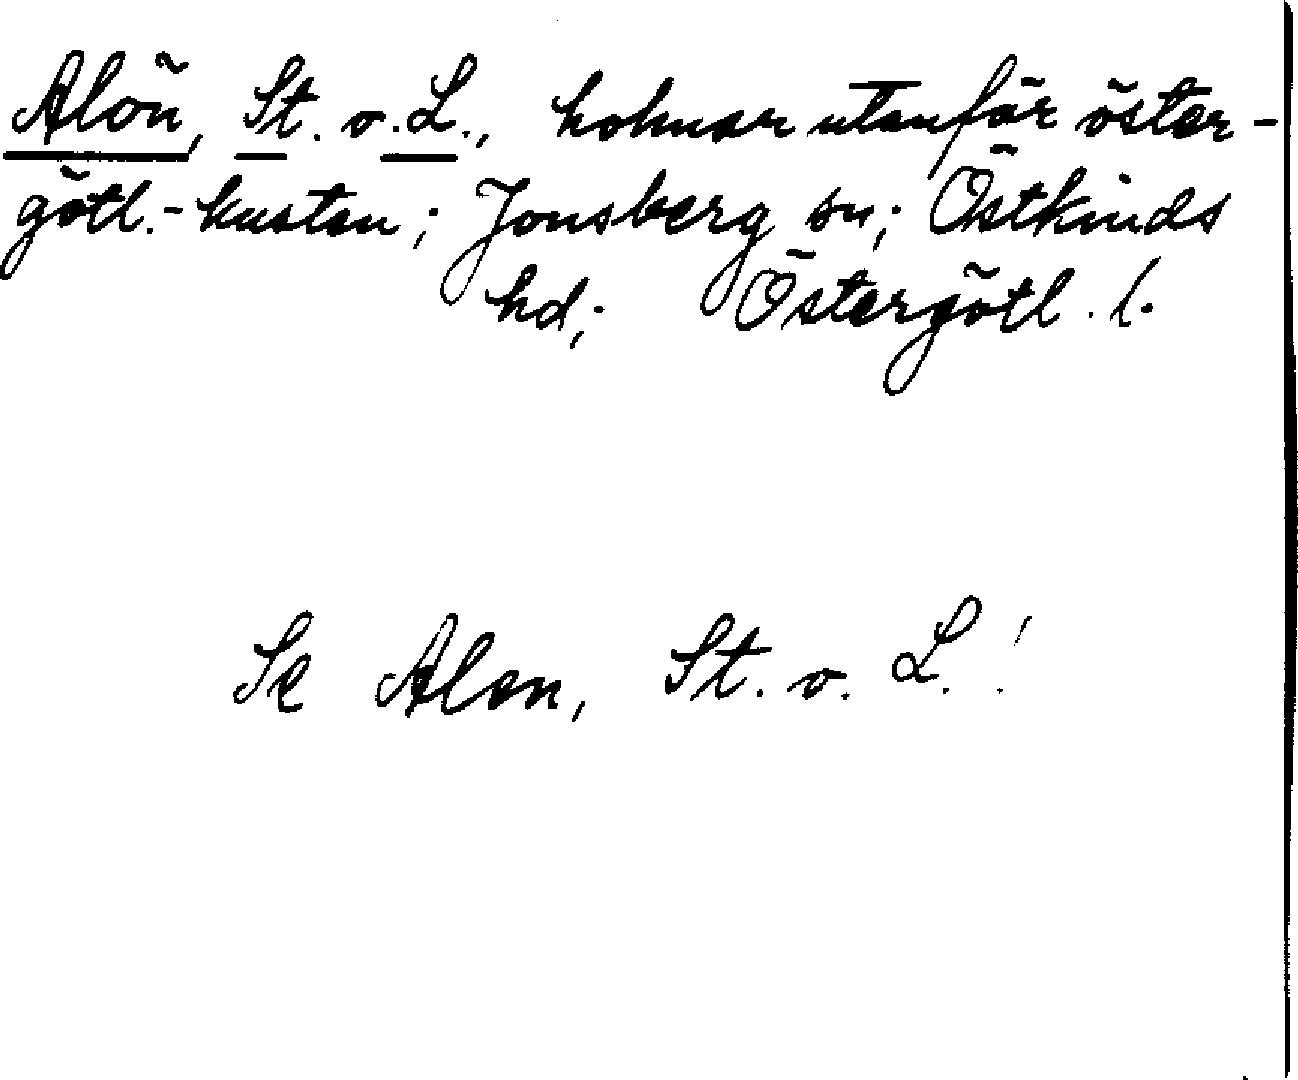 Alön, St. o. L., holmar utanför öster-
götl.-kusten; Jonsberg sn; Östkinds
hd; Östergötl. l.
Se Alen, St. o. L.!